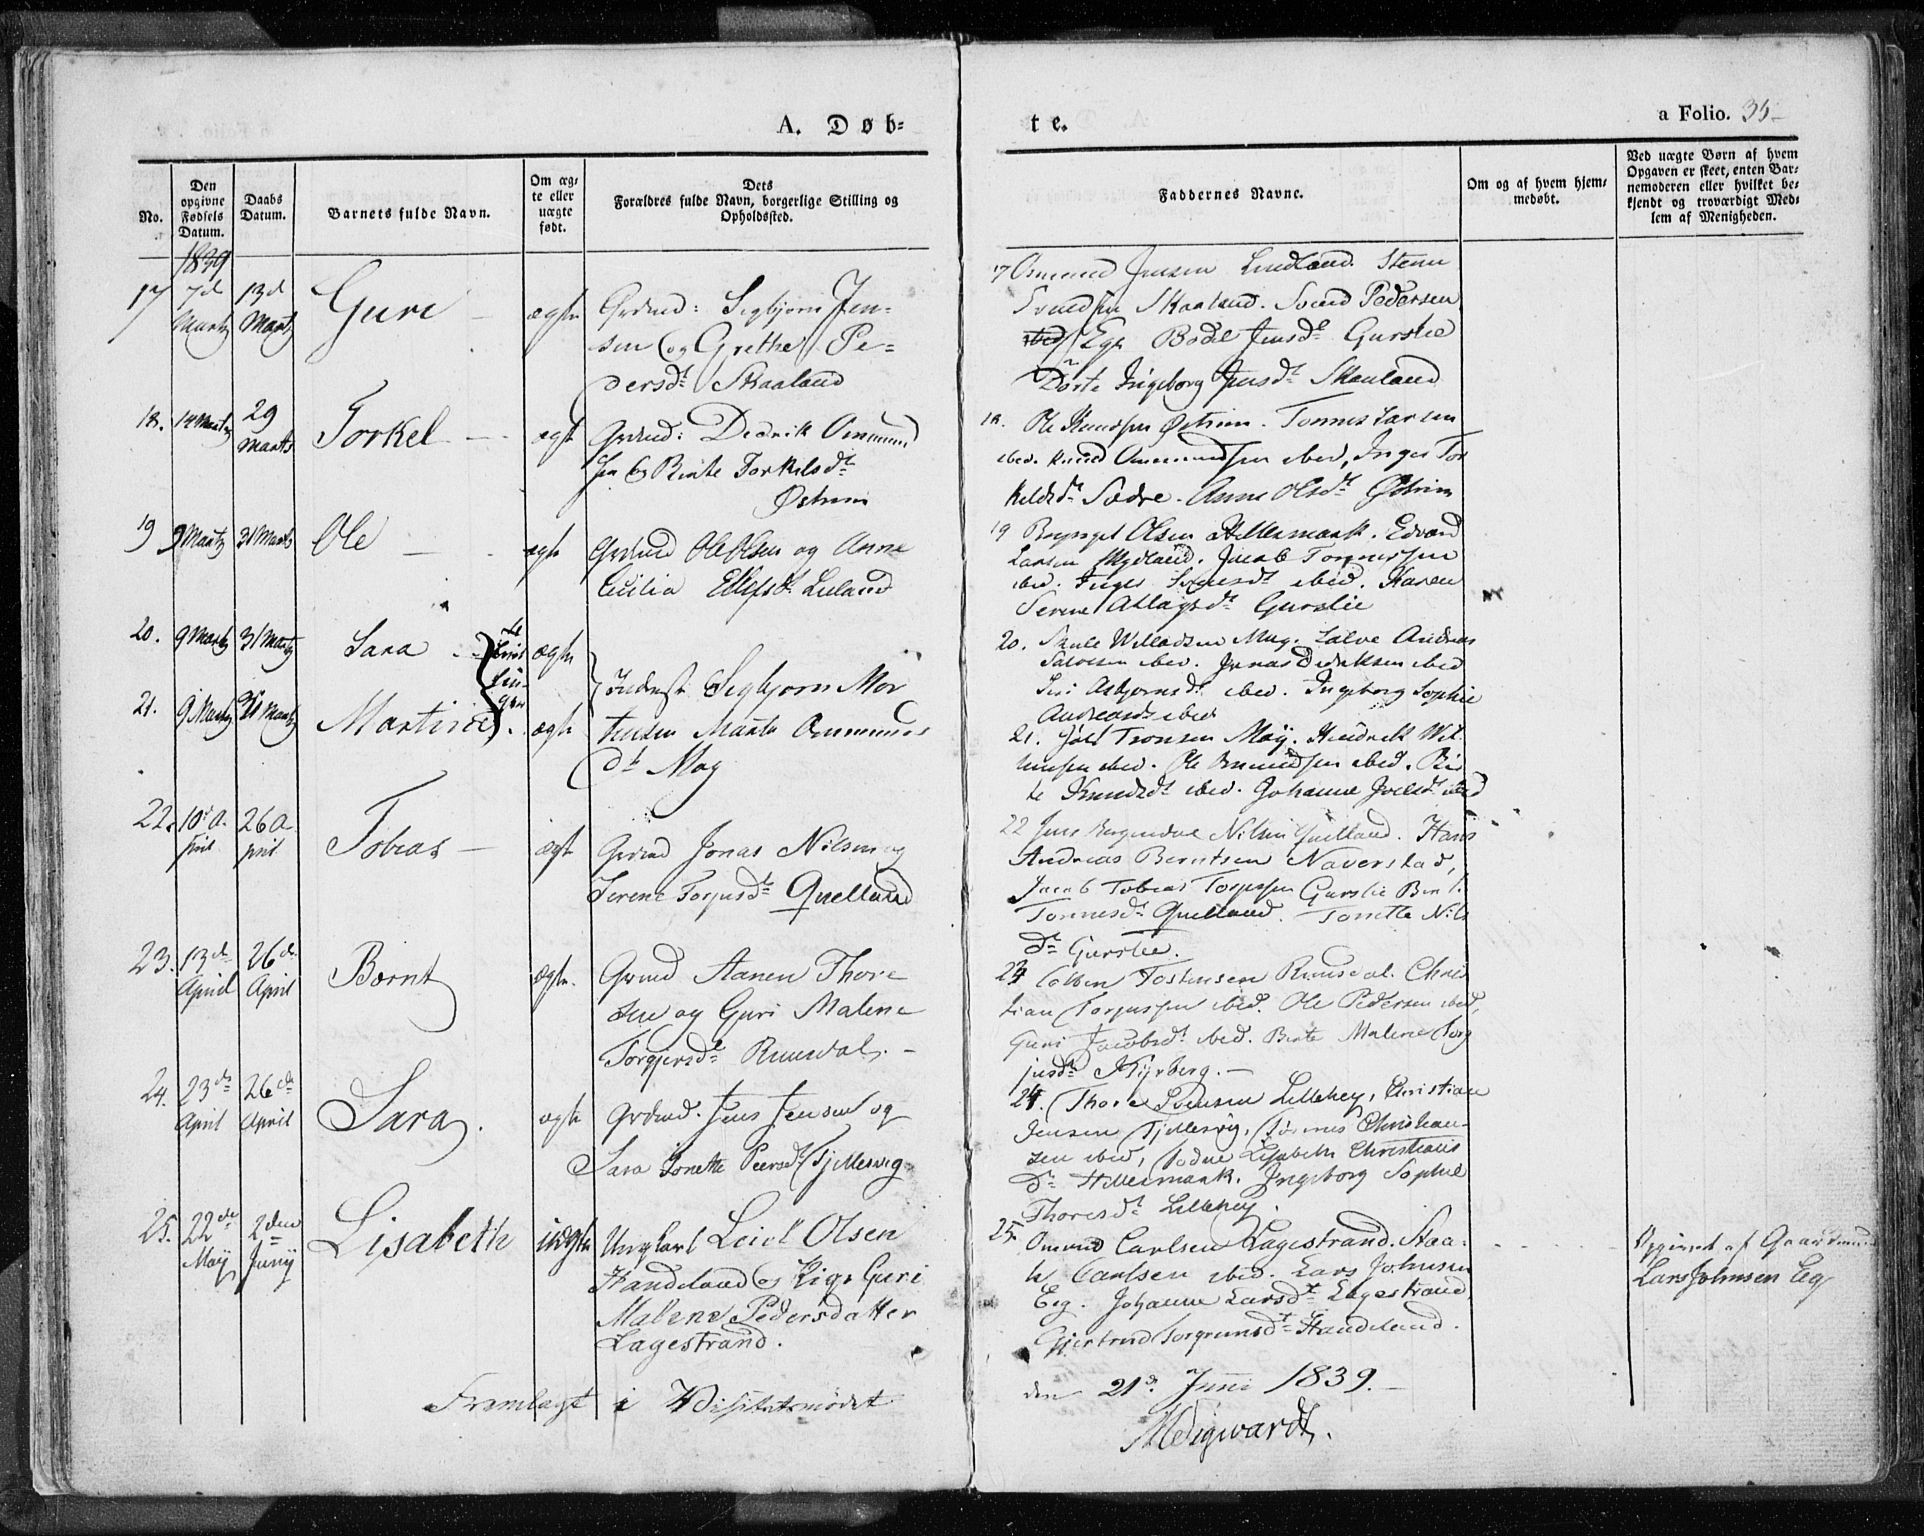 A. Døb-
te.
a Folio. 35
No.
Den opgivne Fødsels Datum.
Daabs Datum.
Barnets fulde Navn.
Om ægte eller uægte født.
Dets Forældres fulde Navn, borgerlige Stilling og Opholdssted.
Faddernes Navne.
Om og af hvem hjemmedøbt.
Ved uægte Børn af hvem Opgaven er skeet, enten Barnemoderen eller hvilket bekjendt og troværdigt Medlem af Menigheden.
1839
17 7d Martz 13d Martz Guri ægte
Grdmd: Sigbjørn Jen-
sen og Grethe Pe-
dersdt Skaaland
17 Osmund Jensen Lindland. Steen
Svendsen Skaaland. Svend Pedersen
Ege Bodel Jensdt Gurslie
Dorte Ingeborg Jensdt Skaaland
18. 14 Martz 29 Marts Torkel ægte
Grdmd: Dedrik Ommund
sen og Birite Torkilsdt
Østrem
18. Ole Knudsen Østrem. Tonnes Larsen
ibed. Knud Ommundsen ibed, Inger Tor
kelsdt Sædre. Anne Olsdt Østrem
19 9 Martz 31 Marts Ole ægte
Grdmd Ole Olsen og Anne
Cecilia Ellefsdt Luland
19 Olsen Hellesmark. Edvard
Larsen Mydland. Jacob Tonnessen
ibed. Inger ibed. Karen
Serene Atlagsdt Gurslie
20. 9 Martz 31 Martz Sara ægte
21. 9 Martz 31 Martz Martine. ægte
Inderst Sigbjørn Mor
tensen Marte Ommunds
dt May
20. Willadsen May. Salve Andreas
Salvesen ibed. Jonas Dedriksen ibed
Siri Asbjornsdt ibed. Ingeborg Sophie
Andreasdt ibed
21. Joel Tronsen May. Hendrek Wil
lumsen ibed. Ole Omundsen ibed. Bir
te Knudsdt ibed. Johanne Joelsdt ibed
22. 10d April 26 April Tobias ægte
Grdmd Jonas Nilsen og
Serene Torjusdt Quelland
22 Jens Nilsen Quelland. Hans
Andreas Berntsen Naverstad,
Jacob Tobias Torjussen Gurslie Berte
Tonnesdt Quelland. Tonette Nils
dt Gurslie.
23. 13de April 26de April Bernt ægte.
Grmd Aanen Thore
sen og Guri Malene
Torgersdt Ruusdal. –
23 Tostensen Ruusdal. Chris
tian Torjussen ibed. Ole Pedersen ibed,
Guri Jacobsdt ibed. Berte Malene Torg
jusdt Myrberg. –
24. 23de April 26de April Sara. ægte
Grdmd. Jens Jensen og
Sara Tonette Peersdt Tjellesvig
24. Thore Lillehey, Christian
Jensen Tjellesvig, Tønnes Christian-
sen ibed, Bodne Lisabeth Christians
dt Hellesmark. Ingeborg Sophie
Thoresdt Lillehey.
25. 22de May 2den Juny Lisabeth uægte
Ungkarl Leiel Olsen
Handeland og Pige Guri
Malene Pedersdatter
Lagestrand.
25. Omund Carlsen Lagestrand. Staa-
le Carlsen ibed. Lars Johnsen
Eeg. Johanne Larsdt Lagestrand,
Gjertrud Torgrimsdt Handeland.
Opgivet af Gaardmand
Lars Johnsen Eeg
Fremlagt i Visitatsmødet
den 21de Juni 1839. –